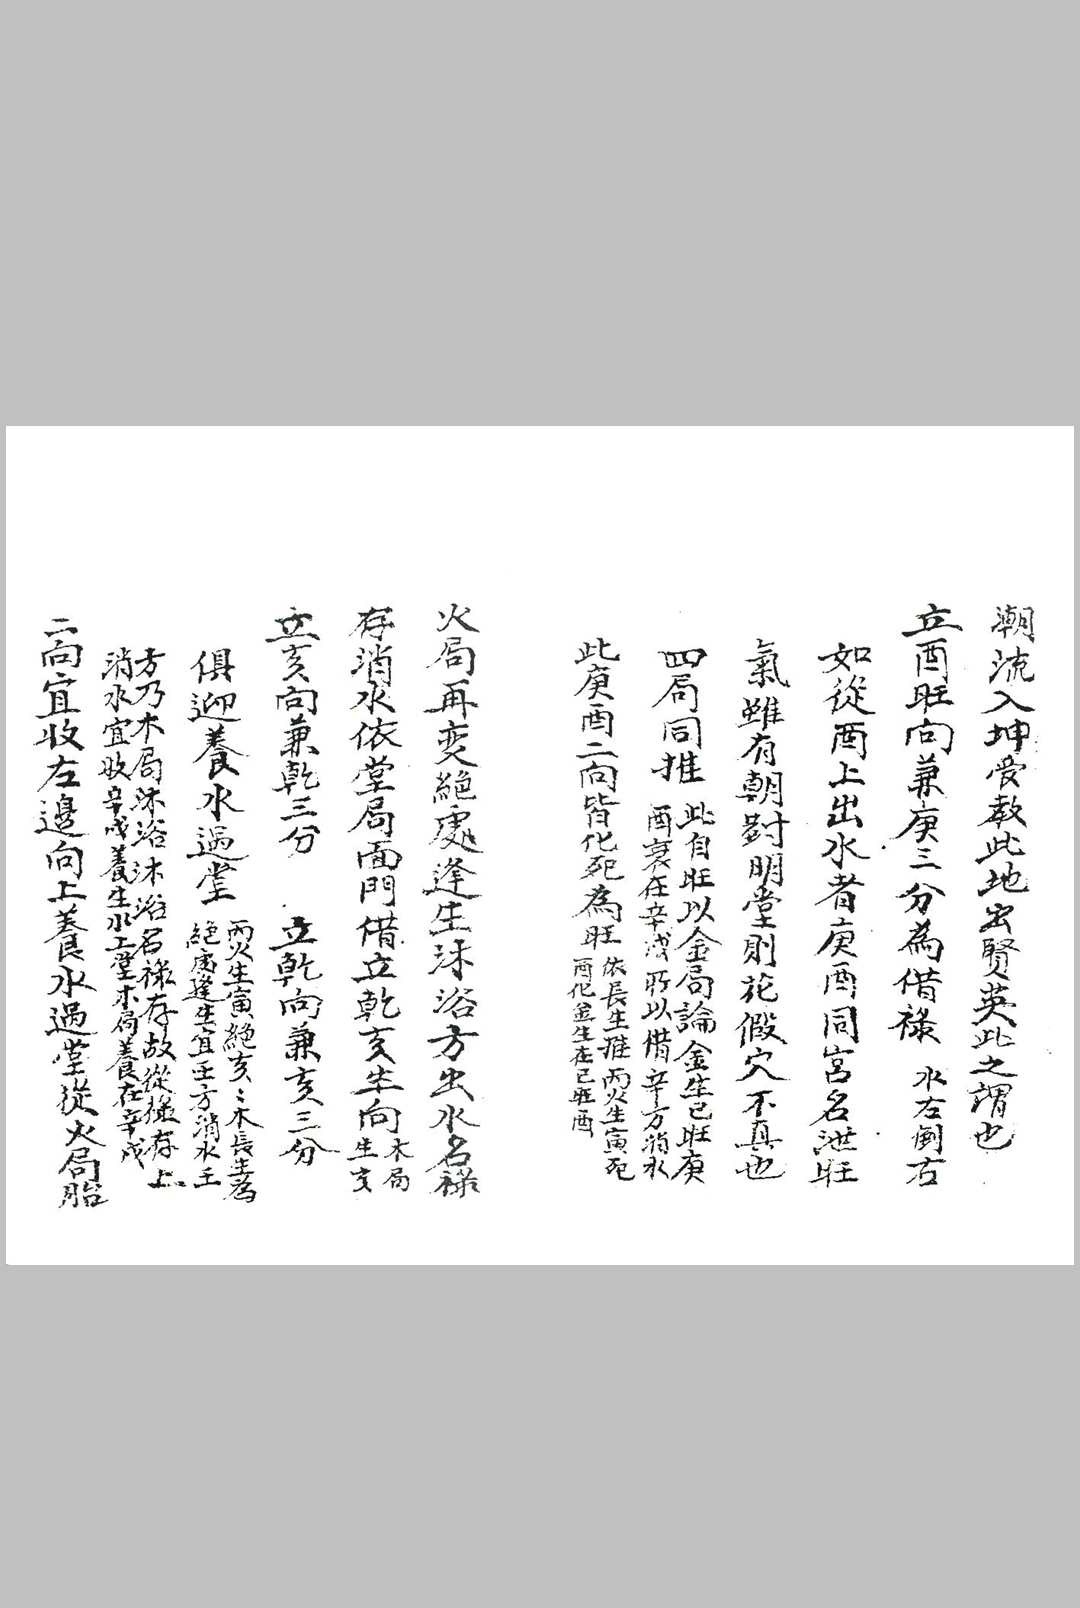 潮流入坤受教此地出賢英此之謂也
立酉旺向兼庚三分為借祿 水右倒右
如從酉上出水者庚酉同宮名泄旺
氣雖有朝對明堂則花假穴不真也
四局同推
此自旺以金局論金生巳旺庚
酉衰在辛戌所以借辛方消水
此庚酉二向皆化死為旺
依長生推丙火生寅死
酉化金生在巳旺酉
火局再变絕處逢生沐浴方出水名祿
存消水依堂局面門借立乾亥生向
木局
生亥
立亥向兼乾三分 立乾向兼亥三分
俱迎養水過堂
丙火生寅絕亥〻木長生為
絕處逢生宜壬方消水壬
方乃木局沐浴沐浴名祿存故從祿存上
消水宜收辛戌養生水上堂木局養在辛戌
二向宜收左邊向上養水過堂從火局胎